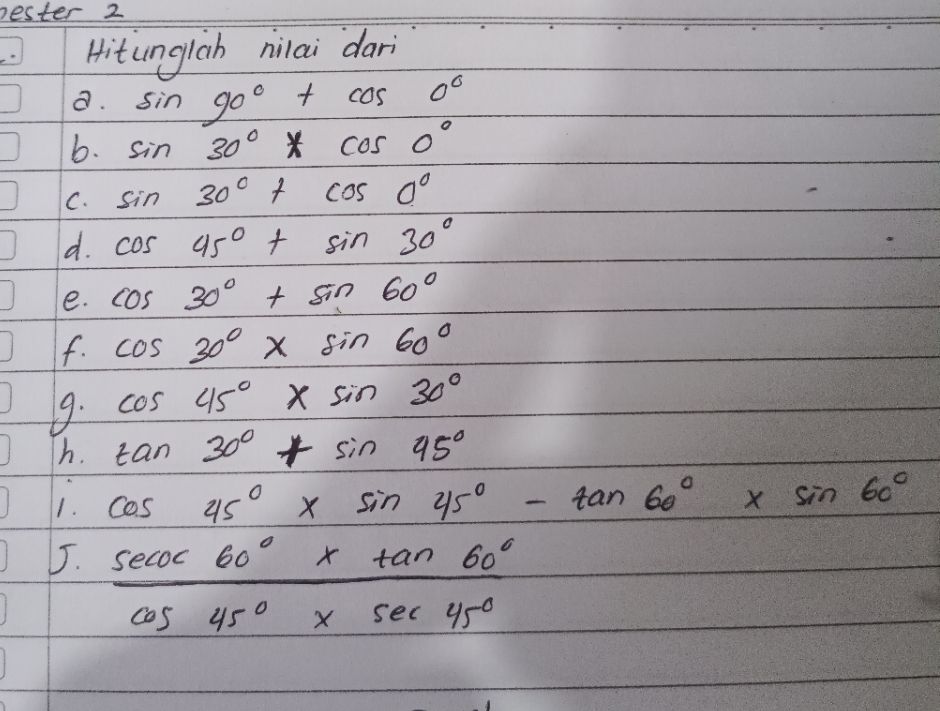 mester 2
Hitunglah nilai dari
a. sin 90° + cos 0°
b. sin 30° x cos 0°
c. sin 30° + cos 0°
d. cos 45° + sin 30°
e. cos 30° + sin 60°
f. cos 30° x sin 60°
g. cos 45° x sin 30°
h. tan 30° + sin 45°
i. cos 45° x sin 45° - tan 60° x sin 60°
J. secoc 60° x tan 60°
cos 45° x sec 45°